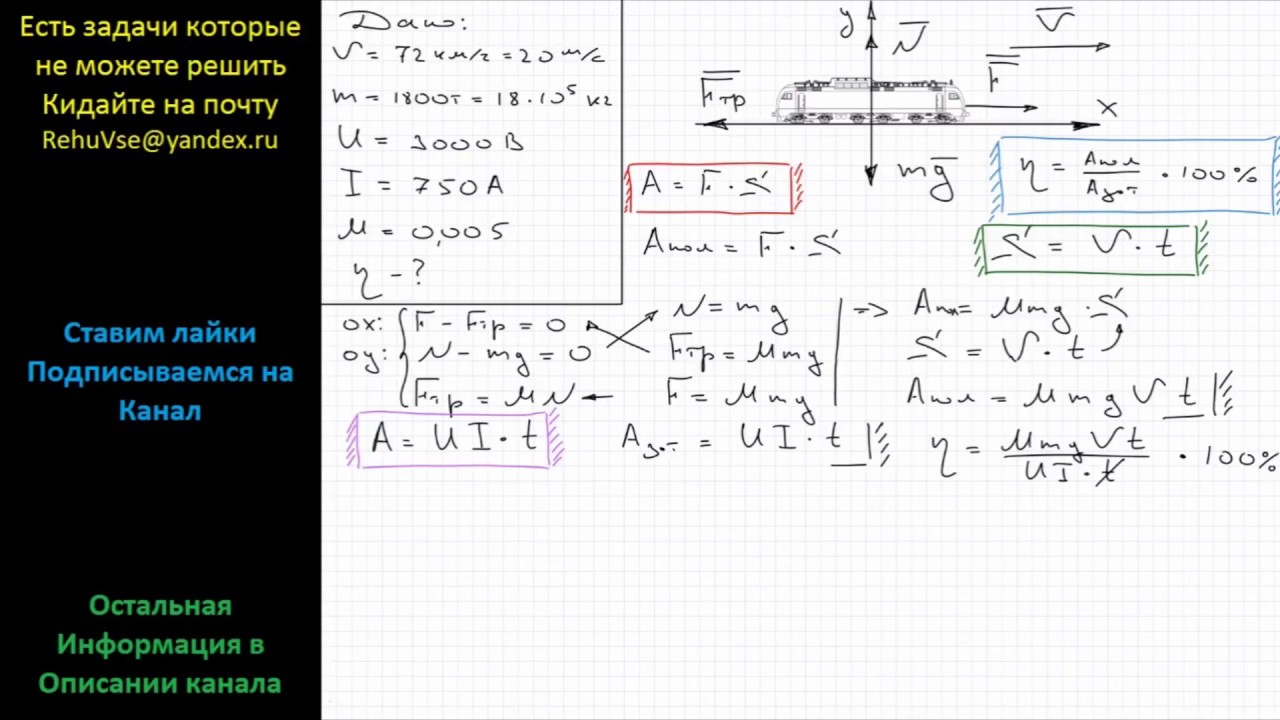 Есть задачи которые
не можете решить
Кидайте на почту
RehuVse@yandex.ru
Ставим лайки
Подписываемся на
Канал
Остальная
Информация в
Описании канала
Дано:
V = 72 км/ч = 20 м/с
m = 1800т = 18·10⁵ кг
U = 3000 В
I = 750 А
μ = 0,005
η - ?
y
N
V
Fтр
F
x
mg
A = F · S
η = Aпол / Aзат · 100%
Aпол = F · S
S = V · t
ox: F - Fтр = 0
oy: N - mg = 0
Fтр = μN
N = mg
Fтр = μmg
F = μmg
=> Aпол = μmg · S
S = V · t
Aпол = μmgVt
A = UI · t
Aзат = UI · t
η = μmgVt / UI · t · 100%